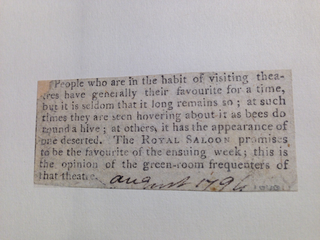 People who are in the habit of visiting thea-
tres have generally their favourite for a time,
but it is seldom that it long remains so; at such
times they are seen hovering about it as bees do
round a hive; at others, it has the appearance of
one deserted. The ROYAL SALOON promises
to be the favourite of the ensuing week; this is
the opinion of the green-room frequenters of
that theatre.
august 1794